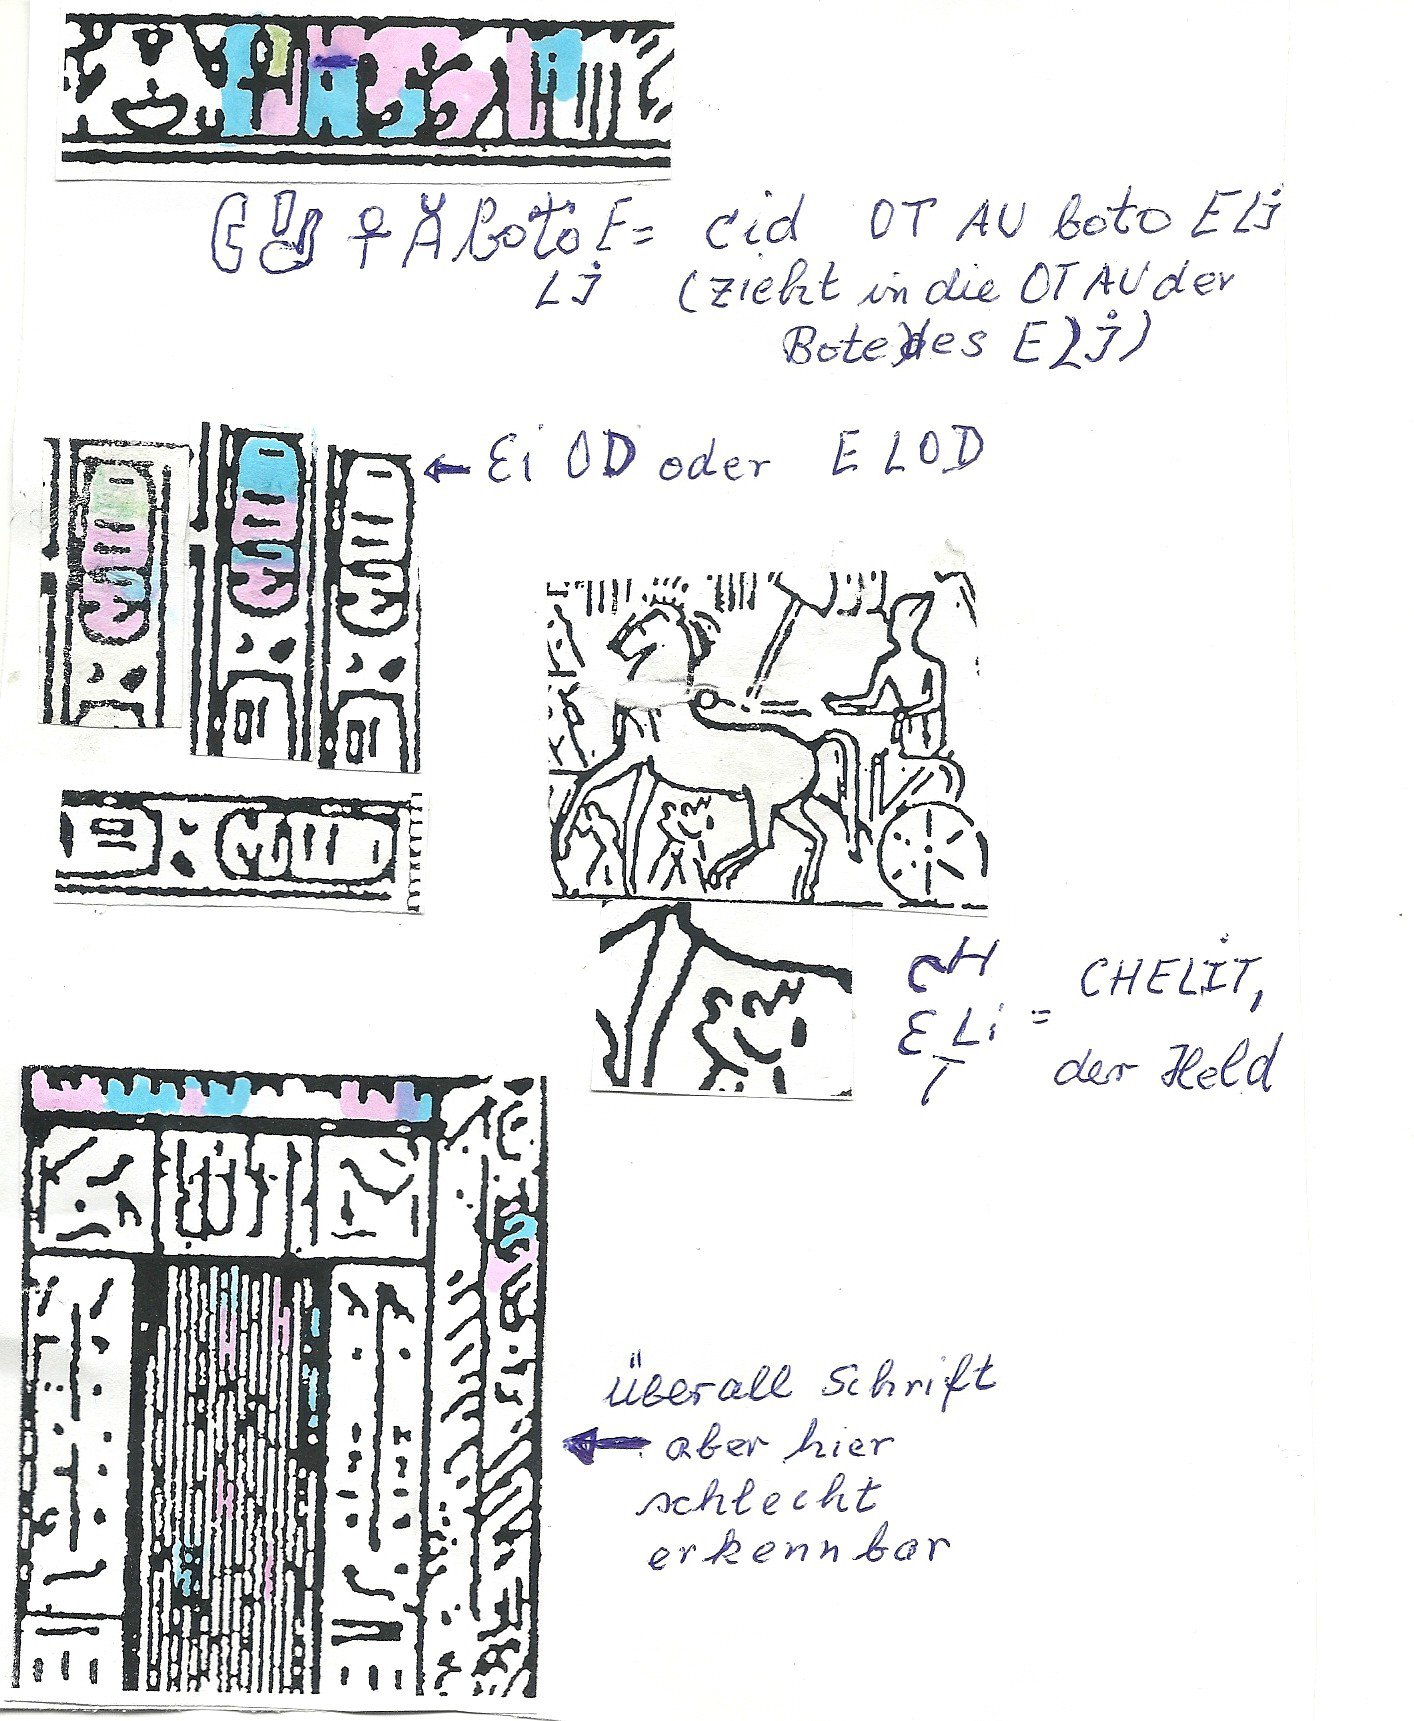 boto E = cid OT AU boto ELj
Lj (zieht in die OT AU der
Bote des ELj)
← Ei OD oder ELOD
CH
ELi = CHELiT,
T der Held
überall Schrift
← aber hier
schlecht
erkennbar